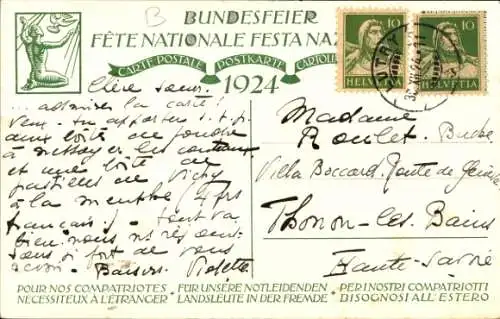 B
BUNDESFEIER
FÊTE NATIONALE FESTA NAZ
CARTE POSTALE POSTKARTE CARTOLI
1924
10 10
HELVETIA HELVETIA
LUTRY
Chère soeur.
... admirer la carte!
Veux-tu apporter s.t.p.
une boîte de poudre
à nettoyer les couteaux
et une boîte de
pastilles de Vichy
à la menthe (4 frs
français). Tout va
bien. nous ns réjouis-
sons si fort de vous
revoir. Baisers. Violette
Madame
Roulet-
Villa Boccard. Route de Genève
Thonon-les-Bains
Haute-Savoie
POUR NOS COMPATRIOTES + FÜR UNSERE NOTLEIDENDEN + PER I NOSTRI COMPATRIOTTI
NÉCESSITEUX À L'ÉTRANGER + LANDSLEUTE IN DER FREMDE + BISOGNOSI ALL'ESTERO